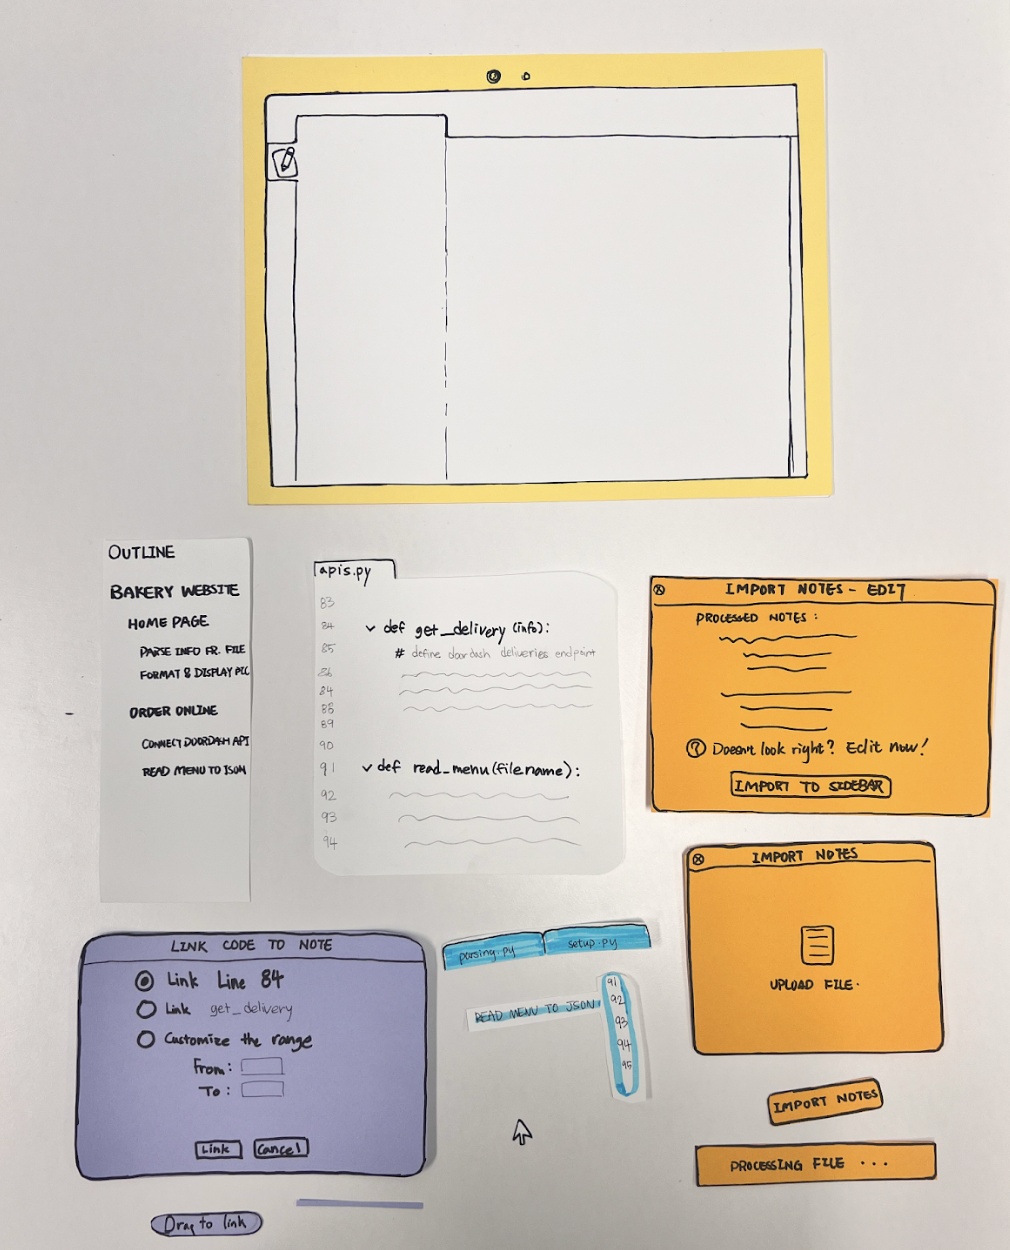 OUTLINE
BAKERY WEBSITE
HOME PAGE
PARSE INFO FR. FILE
FORMAT & DISPLAY PIC
ORDER ONLINE
CONNECT DOORDASH API
READ MENU TO JSON
apis.py
83
84 def get_delivery (info):
85 # define doordash deliveries endpoint
86
84
88
89
90
91 def read_menu(filename):
92
93
94
IMPORT NOTES - EDIT
PROCESSED NOTES:
? Doesn't look right? Edit now!
IMPORT TO SIDEBAR
IMPORT NOTES
UPLOAD FILE.
IMPORT NOTES
PROCESSING FILE ...
LINK CODE TO NOTE
Link Line 84
Link get_delivery
Customize the range
From:
To:
Link Cancel
Drag to link
parsing.py setup.py
READ MENU TO JSON
91
92
93
94
95